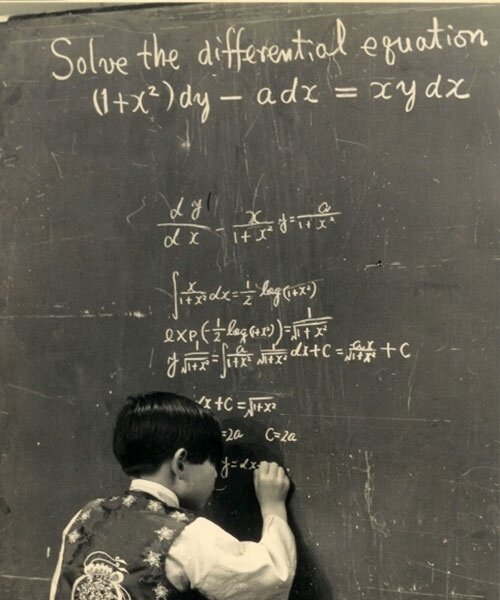 Solve the differential equation
(1+x²)dy − adx = xydx
dy/dx − x/(1+x²) y = a/(1+x²)
∫ x/(1+x²) dx = 1/2 log(1+x²)
exp(−1/2 log(1+x²)) = 1/√(1+x²)
y 1/√(1+x²) = ∫ a/(1+x²) 1/√(1+x²) dx + C = ax/√(1+x²) + C
x + C = √(1+x²)
=2a C=2a
y=